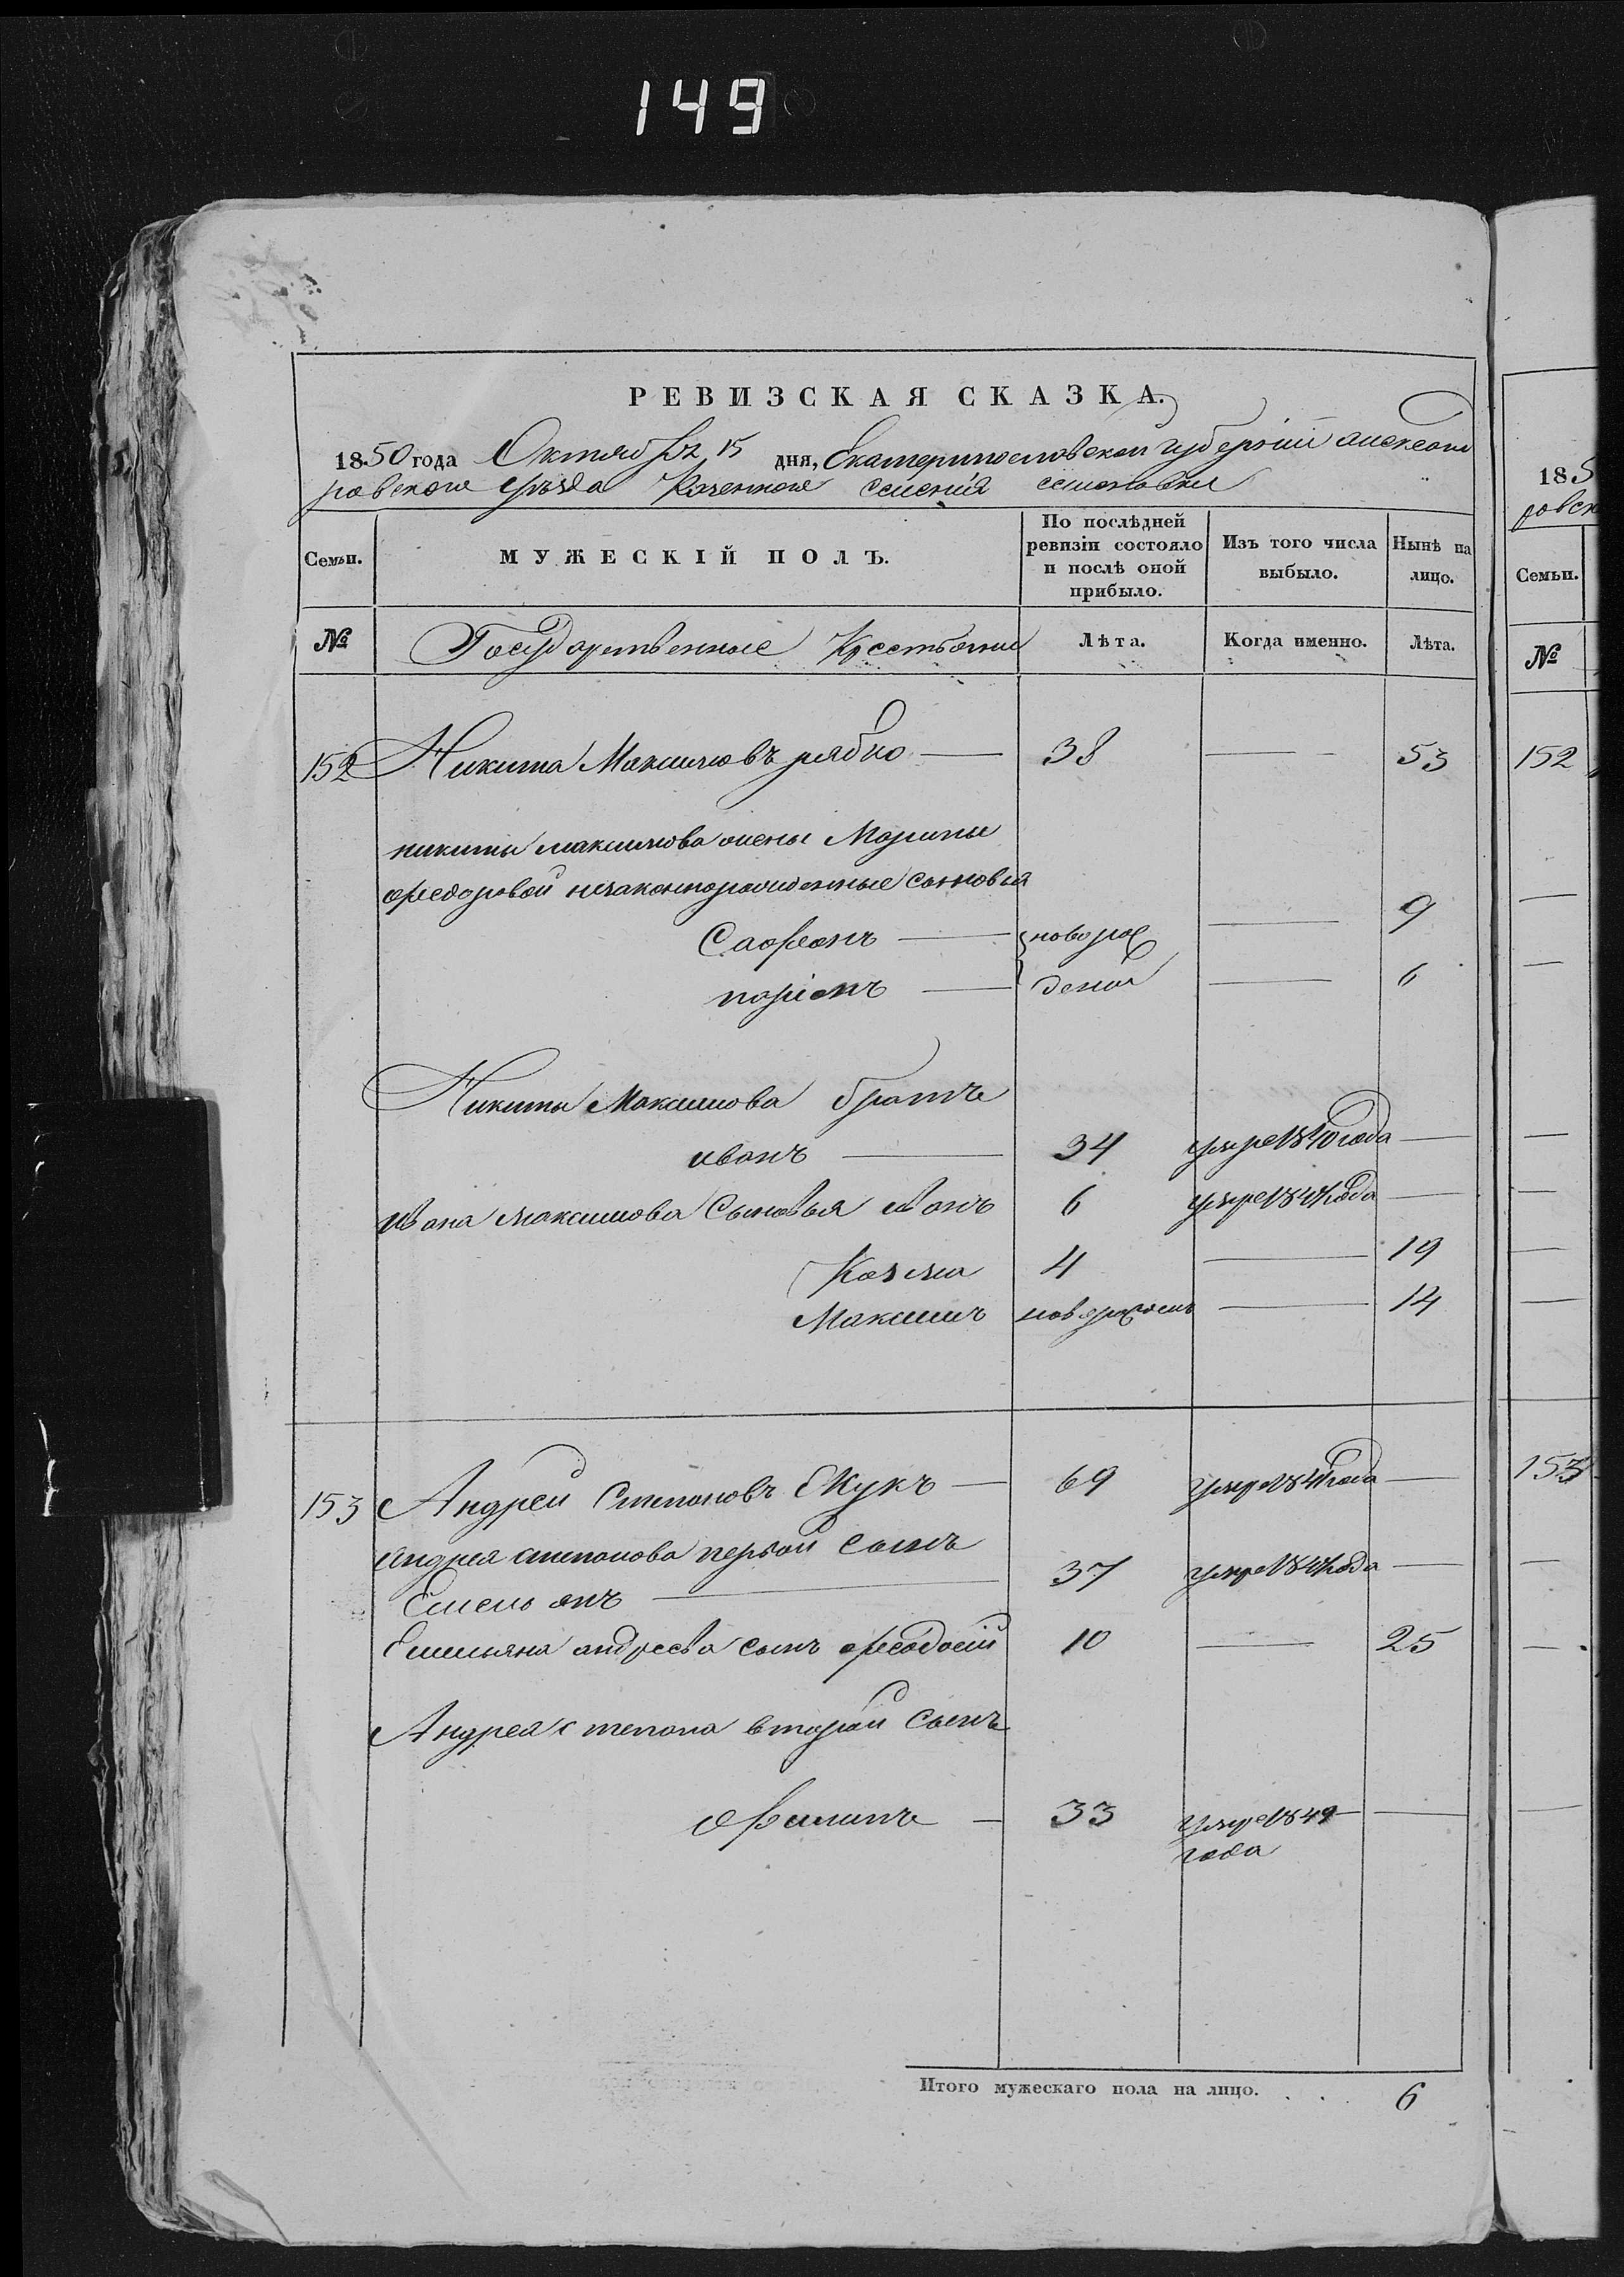 149
РЕВИЗСКАЯ СКАЗКА.
1850 года Октября 15 дня, Екатеринославской губерніи александ
ровскаго уѣзда Казеннаго селенія семеновки
Семьи. МУЖЕСКІЙ ПОЛЪ. По послѣдней ревизіи состояло и послѣ оной прибыло. Изъ того числа выбыло. Нынѣ на лицо.
№ Государственные Крестьяне Лѣта. Когда именно. Лѣта.
152 Никита Максимовъ рябко — 38 — 53
никиты максимова жены Марины
федоровой незаконнорожденные сыновья
Сафонъ — новорож — 9
ларіонъ — денъ — 6
Никиты Максимова братъ
иванъ — 34 умре 1840 года —
ивана максимова сыновья иванъ 6 умре 184 года —
Козма 4 — 19
Максимъ новорожденъ — 14
153 Андрей Степановъ — 69 умре 184 года —
андрея степанова первый сынъ
Емельянъ — 37 умре 184 года —
Емельяна андреева сынъ феодосій 10 — 25
Андрея степана вторый сынъ
филипъ — 33 умре 1849 —
года
Итого мужескаго пола на лицо. . . . 6
185
ровск
Семьи.
№
152
—
—
—
—
—
—
153
—
—
—